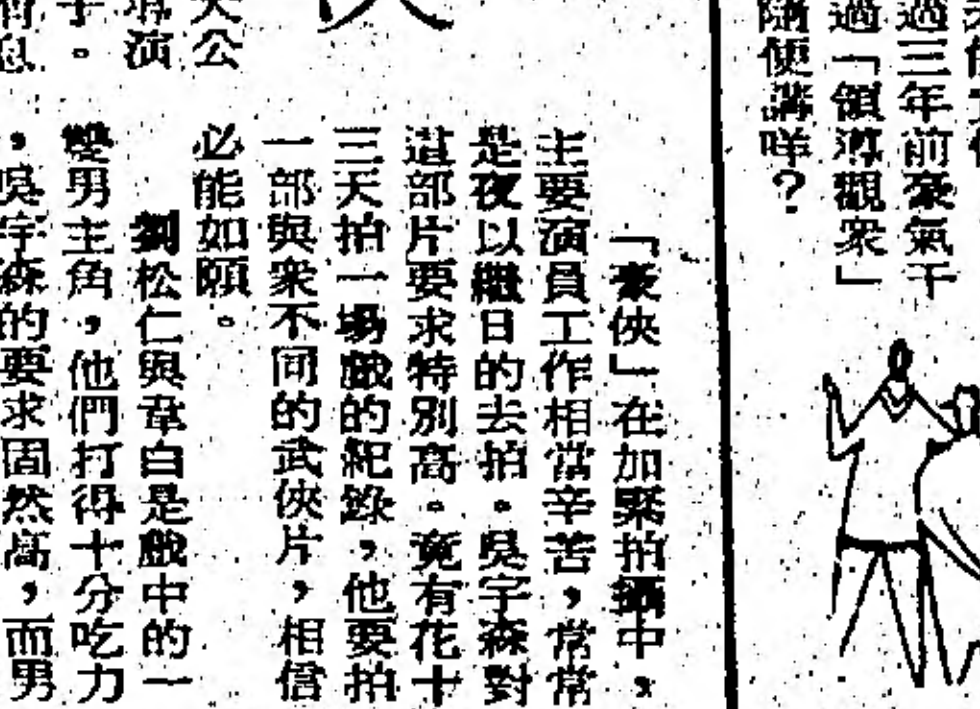 過三年前豪氣干
過「領導觀衆」
隨便講咩？
天公
演
子。
「豪俠」在加緊拍攝中，
主要演員工作相當辛苦，常常
是夜以繼日的去拍。吳宇森對
這部片要求特別高。竟有花十
三天拍一場戲的紀錄，他要拍
一部與衆不同的武俠片，相信
必能如願。
劉松仁與韋白是戲中的一
雙男主角，他們打得十分吃力
，吳宇森的要求固然高，而男